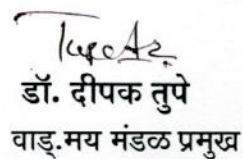 डॉ. दीपक तुपे
वाड्.मय मंडळ प्रमुख